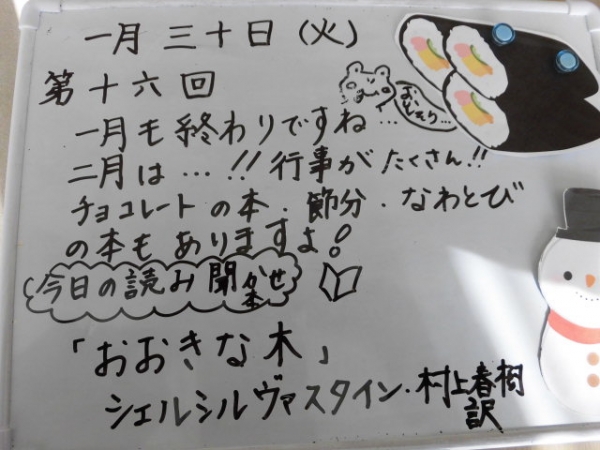 一月三十日(火)
第十六回
一月も終わりですね…
二月は…!!行事がたくさん!!
チョコレートの本・節分・なわとび
の本もありますよ!
今日の読み聞かせ本
「おおきな木」
シェルシルヴァスタイン・村上春樹
訳